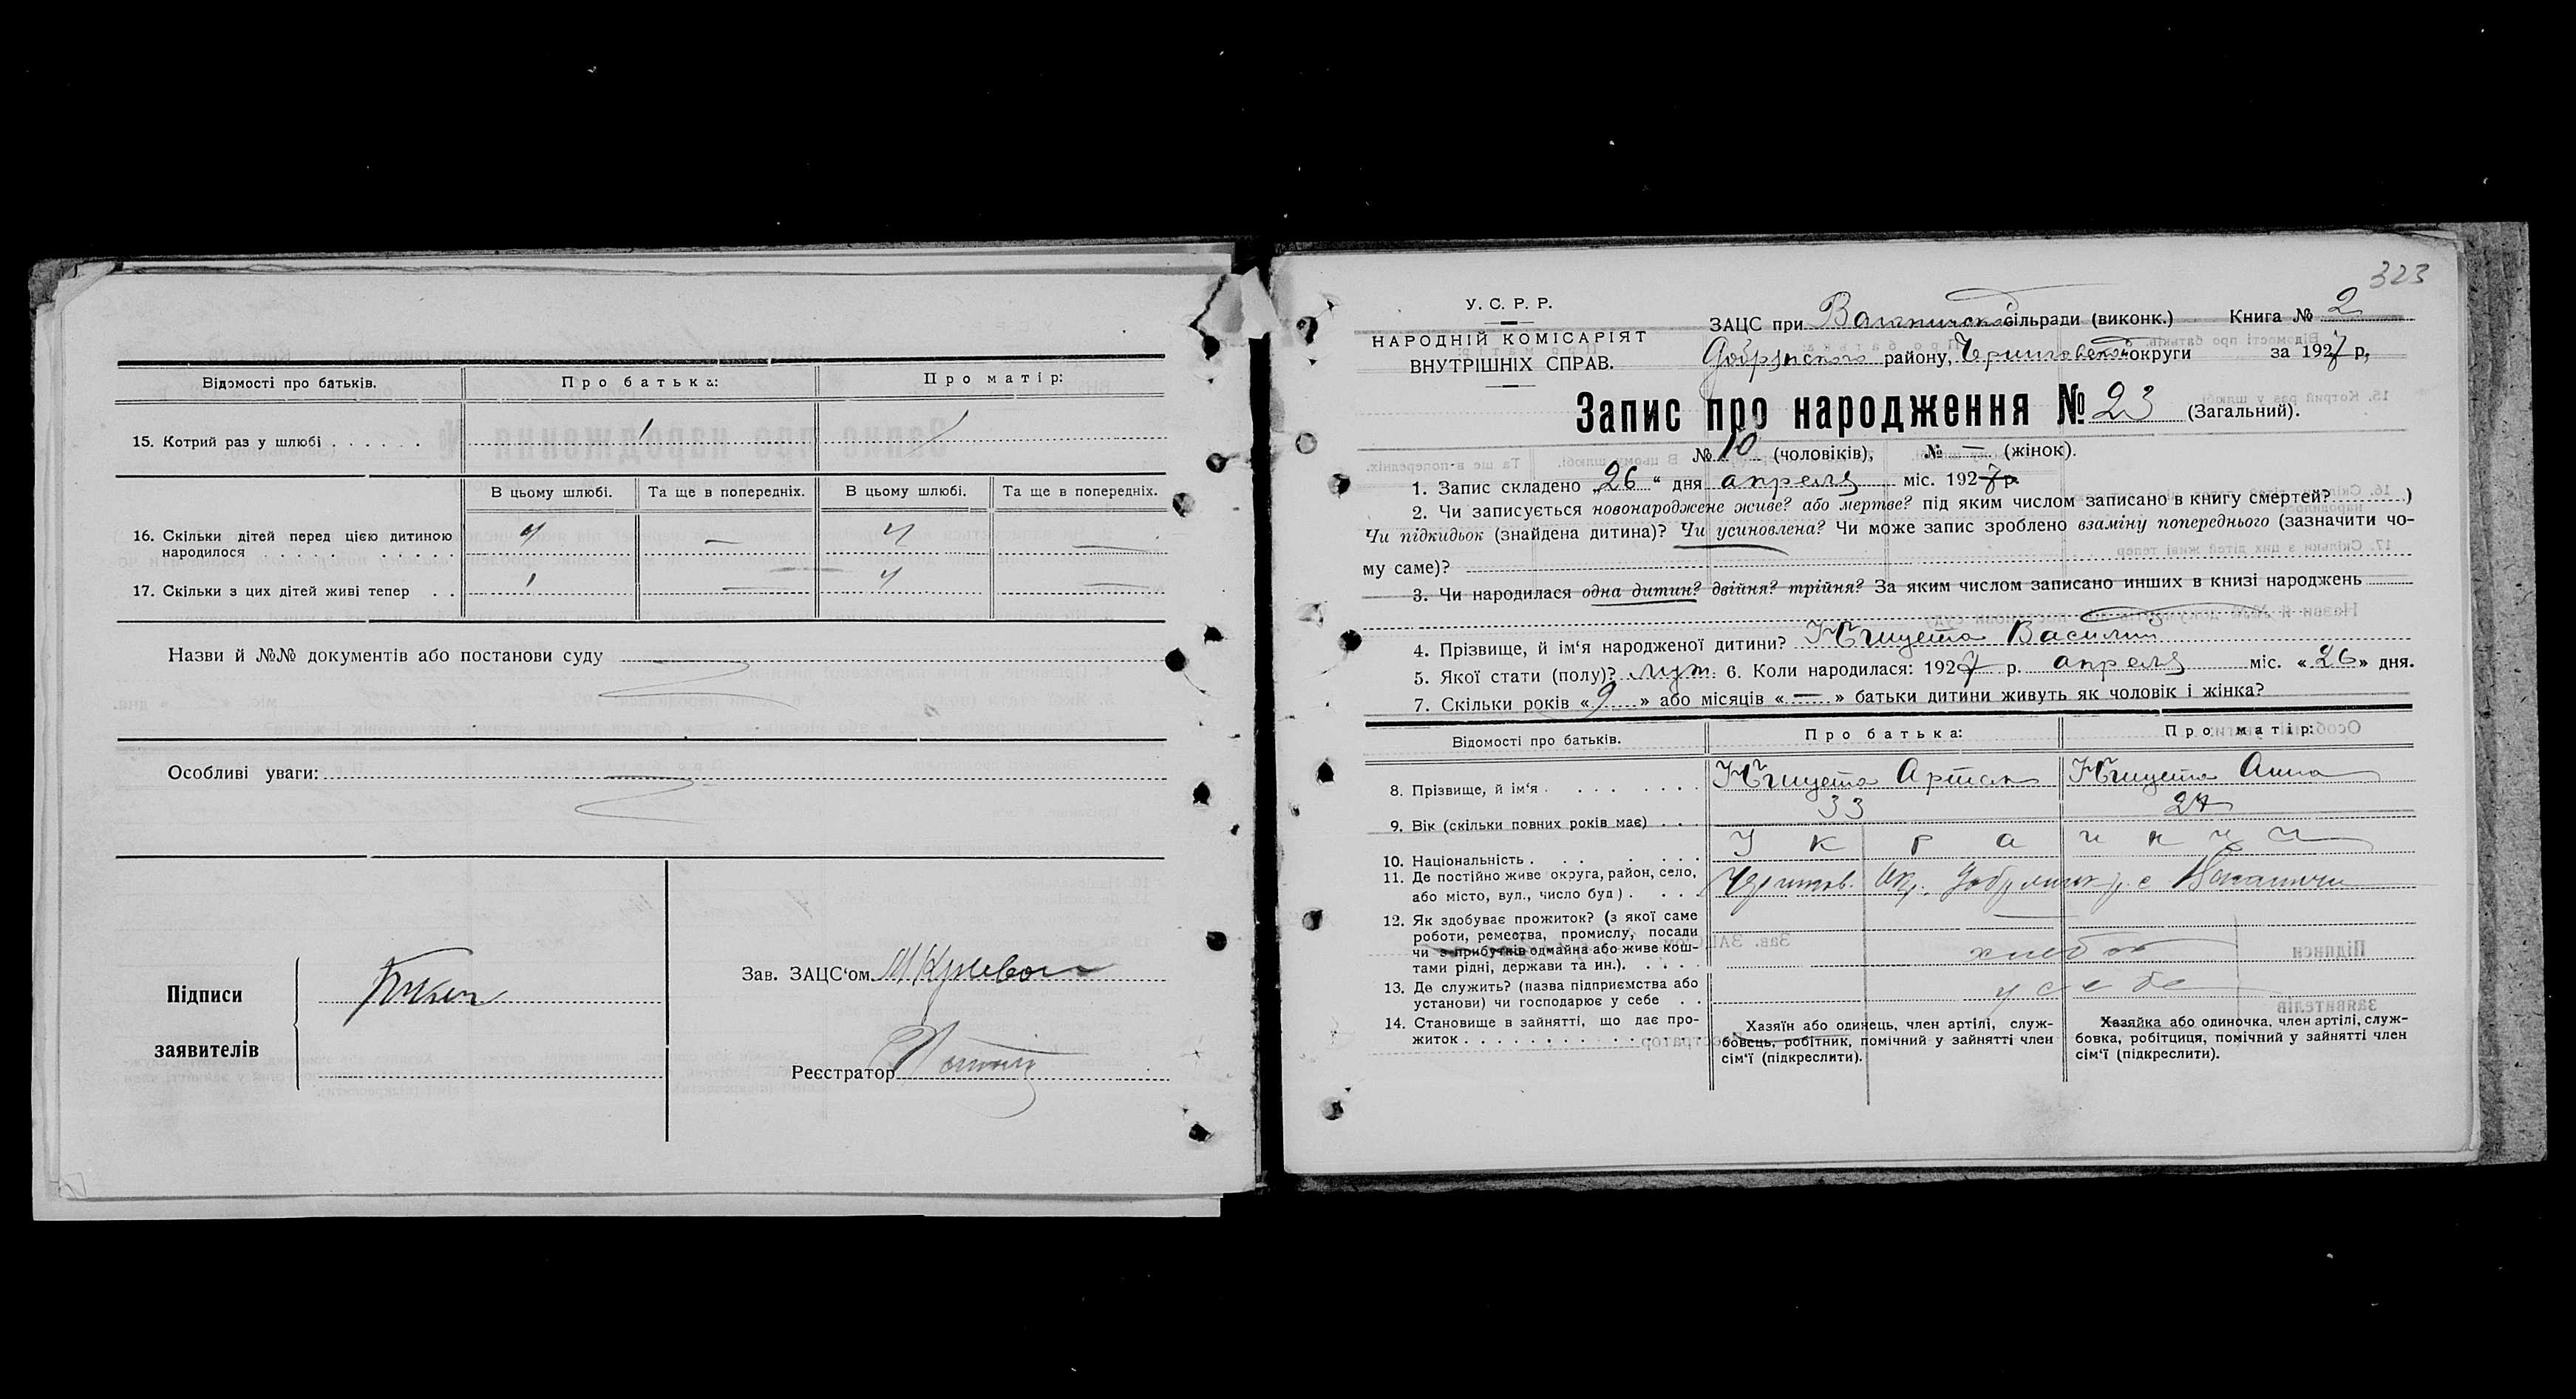 Відомості про батьків.
Про батька:
Про матір:
15. Котрий раз у шлюбі . . . . . .
1
1
В цьому шлюбі.
Та ще в попередніх.
В цьому шлюбі.
Та ще в попередніх.
16. Скільки дітей перед цією дитиною
народилося . . . . . . . . . .
4
—
4
—
17. Скільки з цих дітей живі тепер . .
1
—
4
—
Назви й №№ документів або постанови суду
Особливі уваги:
Підписи
заявителів
Зав. ЗАЦС‘ом
Реєстратор
323
У. С. Р. Р.
НАРОДНІЙ КОМІСАРІЯТ
ВНУТРІШНІХ СПРАВ.
ЗАЦС при сільради (виконк.) Книга № 2
району, округи за 1927 р.
Запис про народження № 23 (Загальний).
№ 10 (чоловіків), № — (жінок).
1. Запис складено „26“ дня апреля міс. 1927 р.
2. Чи записується новонароджене живе? або мертве? під яким числом записано в книгу смертей? )
Чи підкидьок (знайдена дитина)? Чи усиновлена? Чи може запис зроблено взаміну попереднього (зазначити чо-
му саме)?
3. Чи народилася одна дитин? двійня? трійня? За яким числом записано инших в книзі народжень
4. Прізвище, й ім‘я народженої дитини? Василий
5. Якої стати (полу)? муж. 6. Коли народилася: 1927 р. апреля міс. «26» дня.
7. Скільки років «9» або місяців «—» батьки дитини живуть як чоловік і жінка?
Відомості про батьків.
Про батька:
Про матір:
8. Прізвище, й ім‘я . . . . . . .
Анна
9. Вік (скільки повних років має) . . .
33
27
10. Національність . . . . . . .
Украинци
11. Де постійно живе округа, район, село,
або місто, вул., число буд) . . . .
12. Як здобуває прожиток? (з якої саме
роботи, ремества, промислу, посади
чи з прибутків одмайна або живе кош-
тами рідні, держави та ин.). . . . .
13. Де служить? (назва підприємства або
установи) чи господарює у себе . .
у себе
14. Становище в зайнятті, що дає про-
житок . . . . . . . . . . . .
Хазяїн або одинець, член артілі, служ-
бовець, робітник, помічний у зайнятті член
сім‘ї (підкреслити).
Хазяйка або одиночка, член артілі, служ-
бовка, робітциця, помічний у зайнятті член
сім‘ї (підкреслити).